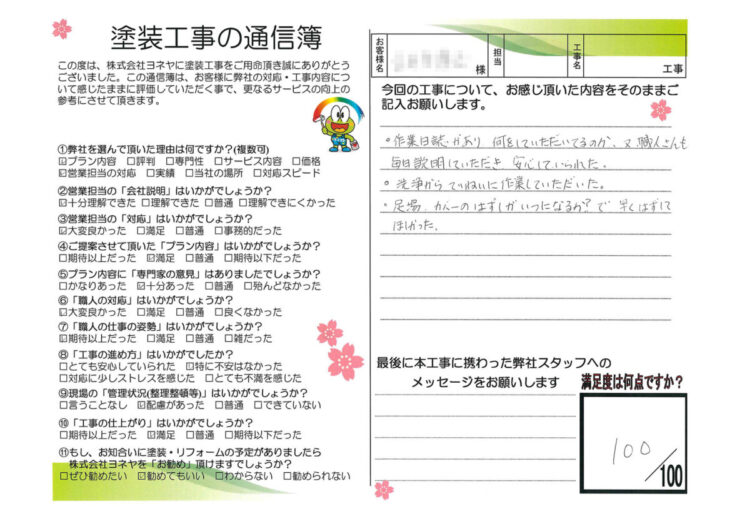 塗装工事の通信簿
この度は、株式会社ヨネヤに塗装工事をご用命頂き誠にありがとう
ございました。この通信簿は、お客様に弊社の対応・工事内容につ
いて感じたままに評価していただく事で、更なるサービスの向上の
参考にさせて頂きます。
①弊社を選んで頂いた理由は何ですか?(複数可)
☑プラン内容 □評判 □専門性 □サービス内容 □価格
☑営業担当の対応 □実績 □当社の場所 □対応スピード
②営業担当の「会社説明」はいかがでしょうか?
☑十分理解できた □理解できた □普通 □理解できにくかった
③営業担当の「対応」はいかがでしょうか?
☑大変良かった □満足 □普通 □事務的だった
④ご提案させて頂いた「プラン内容」はいかがでしょうか?
□期待以上だった ☑満足 □普通 □期待以下だった
⑤プラン内容に「専門家の意見」はありましたでしょうか?
□かなりあった ☑十分あった □普通 □殆んどなかった
⑥「職人の対応」はいかがでしょうか?
☑大変良かった □満足 □普通 □良くなかった
⑦「職人の仕事の姿勢」はいかがでしょうか?
☑期待以上だった □満足 □普通 □雑だった
⑧「工事の進め方」はいかがでしたか?
□とても安心していられた ☑特に不安はなかった
□対応に少しストレスを感じた □とても不満を感じた
⑨現場の「管理状況(整理整頓等)」はいかがでしょうか?
□言うことなし ☑配慮があった □普通 □できていない
⑩「工事の仕上がり」はいかがでしょうか?
□期待以上だった ☑満足 □普通 □期待以下だった
⑪もし、お知合いに塗装・リフォームの予定がありましたら
株式会社ヨネヤを「お勧め」頂けますでしょうか?
□ぜひ勧めたい ☑勧めてもいい □わからない □勧められない
お客様名 様 担当 工事名 工事
今回の工事について、お感じ頂いた内容をそのままご
記入お願いします。
・作業日誌があり 何をしていただいてるのか、又職人さんも
毎日説明していただき 安心していられた。
・洗浄から ていねいに作業していただいた。
・足場、カバーのはずしがいつになるか?で 早くはずして
ほしかった。
最後に本工事に携わった弊社スタッフへの
メッセージをお願いします
満足度は何点ですか?
100
/100